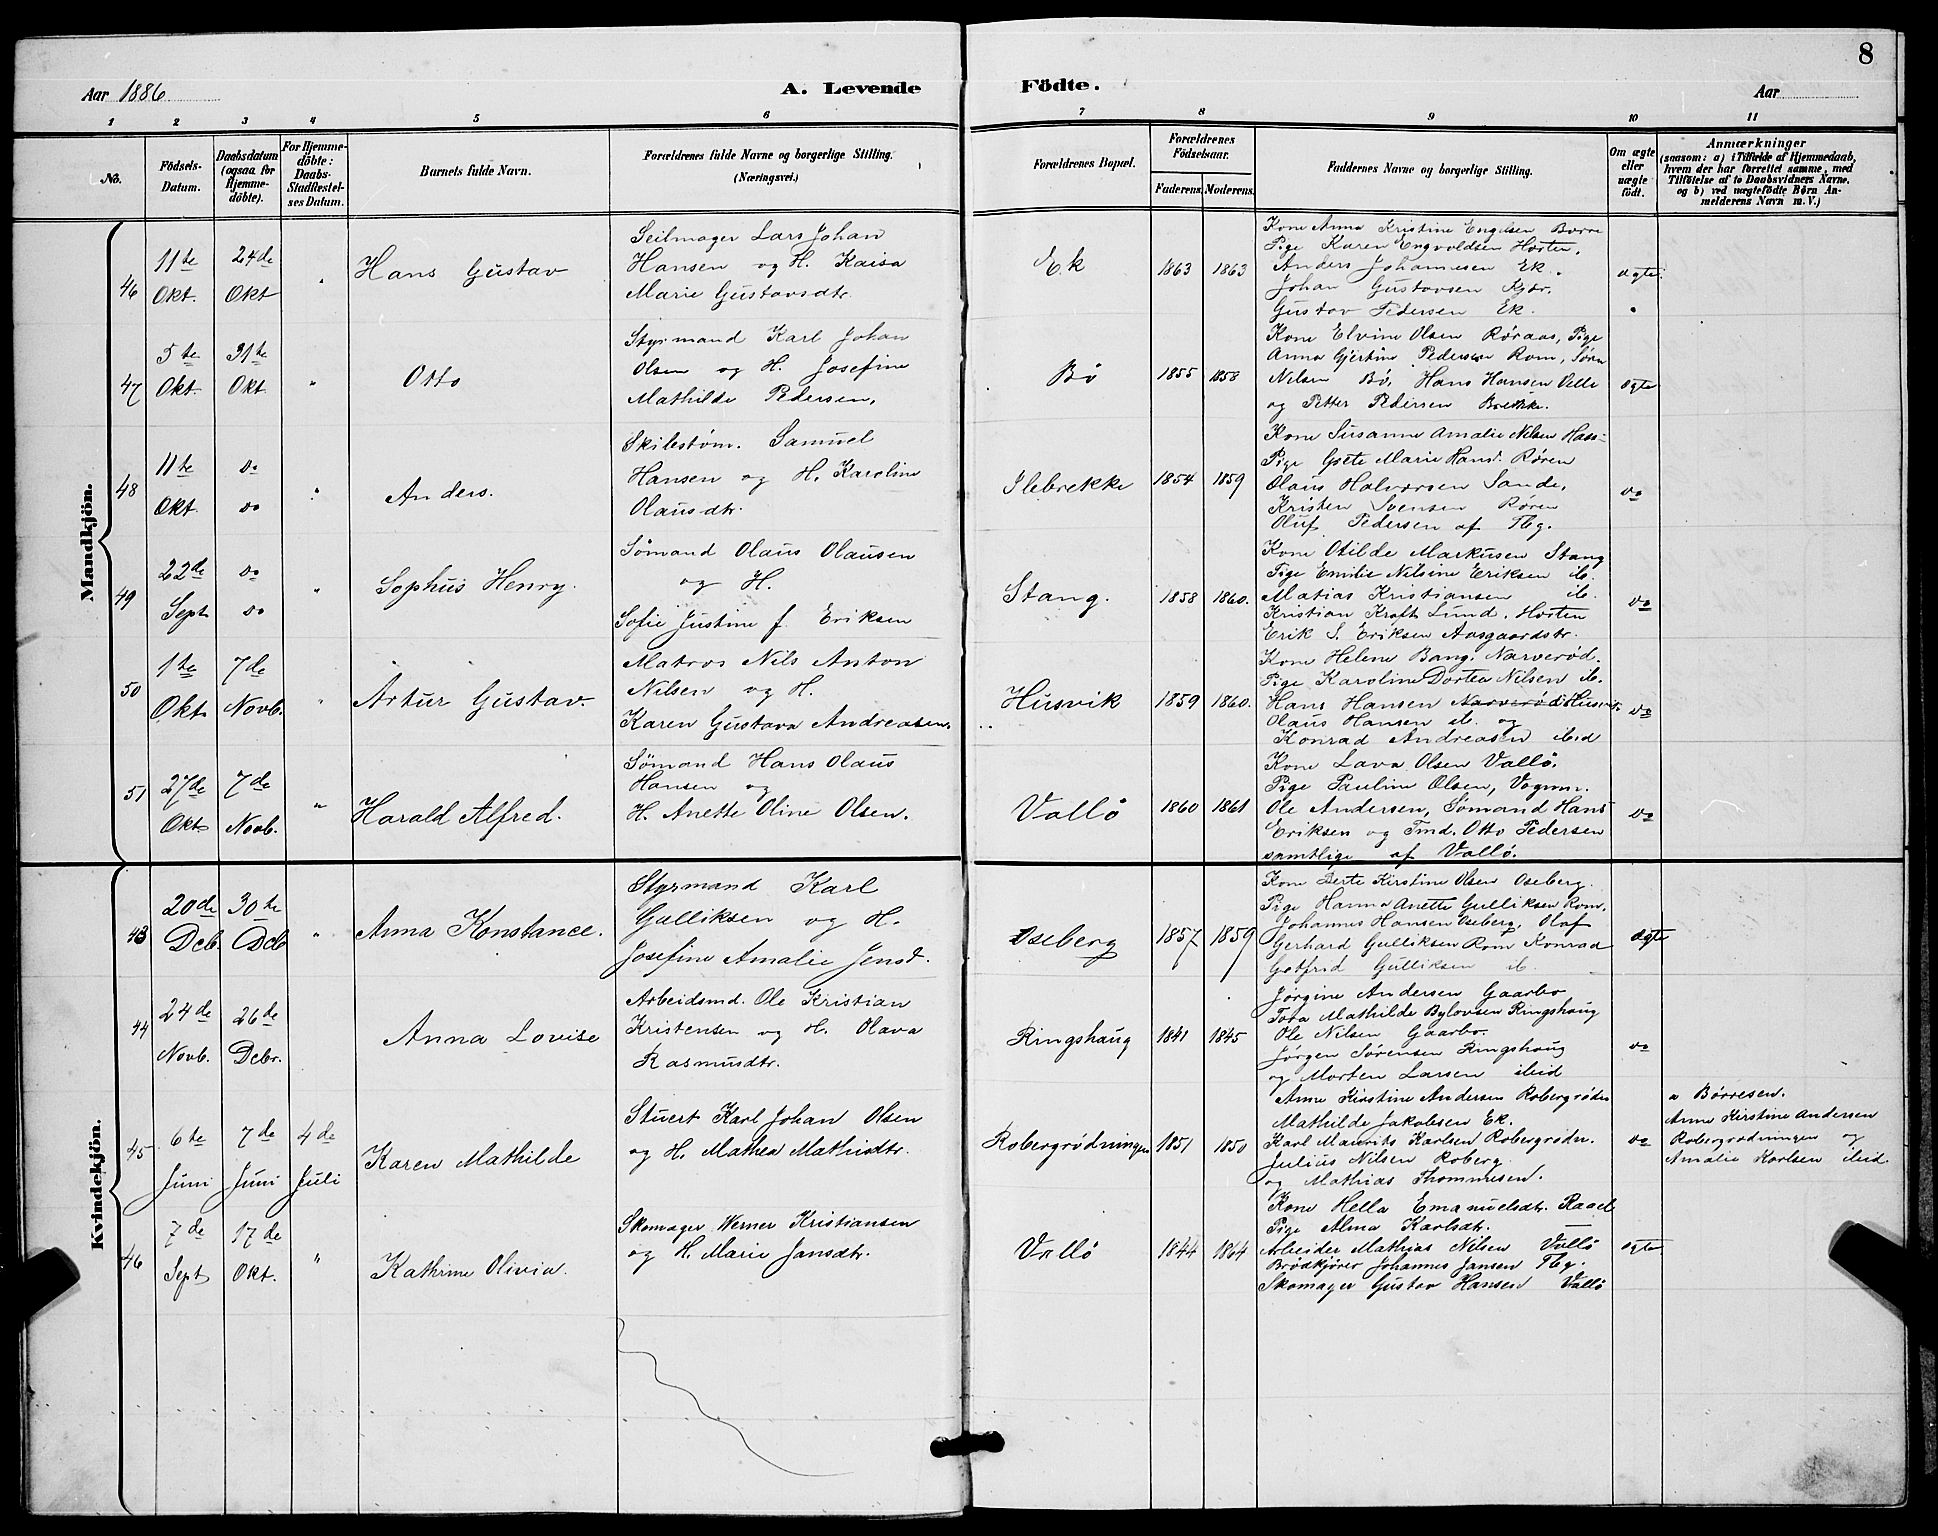 8
Aar 1886
A. Levende Födte.
Aar
1 2 3 4 5 6 7 8 9 10 11
No.
Födsels-Datum.
Daabsdatum (ogsaa for Hjemme-döbte).
For Hjemme-döbte: Daabs-Stadfæstel-ses Datum.
Barnets fulde Navn.
Forældrenes fulde Navne og borgerlige Stilling.
(Næringsvei.)
Forældrenes Bopæl.
Forældrenes Födselsaar.
Faderens. Moderens.
Faddernes Navne og borgerlige Stilling.
Om ægte eller uægte födt.
Anmærkninger
(saasom: a) i Tilfælde af Hjemmedaab,
hvem der har forrettet samme, med
Tilföielse af to Daabsvidners Navne,
og b) ved uægtefödte Börn An-
melderens Navn m.V.)
Mandkjön.
46
11te Okt.
24de Okt
"
Hans Gustav
Seilmager Lars Johan
Hansen og H. Kaisa
Marie Gustavsdtr.
Ek
1863 1863
Kone Anna Kristine Engelsen Borre
Pige Karen Engvoldsen Horten,
Anders Johannesen Ek.
Johan Gustavsen Kjær.
Gustav Pedersen Ek.
ægte
47
5te Okt.
31te Okt.
"
Otto
Styrmand Karl Johan
Olsen og H. Josefine
Mathilde Pedersen,
Bö
1855 1858
Kone Elvine Olsen Röraas, Pige
Anna Gjertine Pedersen Rom, Sörn
Nilsen Bö, Hans Hansen Velle
og Petter Pedersen Brekke.
ægte
48
11te Okt.
do do
"
Anders.
Skibstøm. Samuel
Hansen og H. Karoline
Olausdtr.
Ilebrekke
1854 1859
Kone Susanne Amalie Nilsen Haas-
Pige Grete Marie Hansd. Røren
Olaus Halvorsen Sande,
Kristen Svensen Røren
Oluf Pedersen af Tbg.
do
49
22de Sept
do do
"
Sophus Henry.
Sømand Olaus Olausen
og H.
Sofie Justine f. Eriksen
Stang.
1858 1860.
Kone Otilde Markusen Stang
Pige Emilie Nilsine Eriksen ib.
Matias Kristiansen ib.
Kristian Kraft Lund. Horten
Erik S. Eriksen Aasgaardstr.
do
50
1te Okt.
7de Novb.
"
Artur Gustav.
Matros Nils Anton
Nilsen og H.
Karen Gustava Andreasen.
Husvik
1859 1860.
Kone Helene Bang. Narverød.
Pige Karoline Dortea Nilsen ib.
Hans Hansen Narverød Husvik
Olaus Hansen ib. og
Konrad Andreasen ibid
do
51
27de Okt.
7de Novb.
"
Harald Alfred.
Sømand Hans Olaus
Hansen og
H. Anette Oline Olsen.
Vallö
1860 1861
Kone Lava Olsen Vallö.
Pige Pauline Olsen, Vognm.
Ole Andersen, Sømand Hans
Eriksen og Tmd. Otto Pedersen
samtlige af Vallö.
do
Kvindekjön.
43
20de Dcb.
30te Dcb
"
Anna Konstance.
Styrmand Karl
Gulliksen og H.
Josefine Amalie Jensd.
Oseberg
1857 1859
Kone Berte Kirstine Olsen Oseberg.
Pige Hanna Anette Gulliksen Rom.
Johannes Hansen Oseberg, Olaf
Gerhard Gulliksen Rom Konrad
Gotfrid Gulliksen ib.
ægte
44
24de Novb.
26de Debr.
Anna Lovise
Arbeidsmd. Ole Kristian
Kristensen og H. Olava
Rasmusdtr.
Ringshaug
1841 1845
Jørgine Andersen Gaarbo
Tora Mathilde Bylovsen Ringshaug
Ole Nilsen Gaarbo.
Jørgen Sørensen Ringshoug
og Morten Larsen ibid
do
45
6te Juni
7de Juni
4de Juli
Karen Mathilde
Stuert Karl Johan Olsen
og H. Mathea Mathisdtr.
Robergrødningen
1851 1850
Anne Kirstine Andersen Robergrøden
Mathilde Jakobsen Ek.
Karl Maurits Karlsen Robergrødn.
Julius Nilsen Roberg
og Mathias Thommesen.
do
a Børresen.
Anne Kirstine Andersen
Robergrødningen og
Amalie Karlsen ibid.
46
7de Sept
17de Okt.
"
Kathrine Olivia.
Skomager Werner Kristiansen
og H. Marie Jansdtr.
Vallö
1844 1864
Kone Hella Emanuelsdt. Raael
Pige Alma Karlsdtr. —
Arbeider Mathias Nilsen Vallö
Brødkjører Johannes Jansen Tbg.
Skomager Gustav Hansen Vallö
ægte